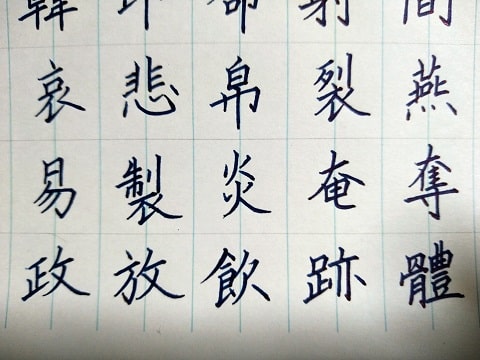 韓 射 間
哀 悲 帛 裂 燕
易 製 炎 奄 奪
政 放 飲 跡 體